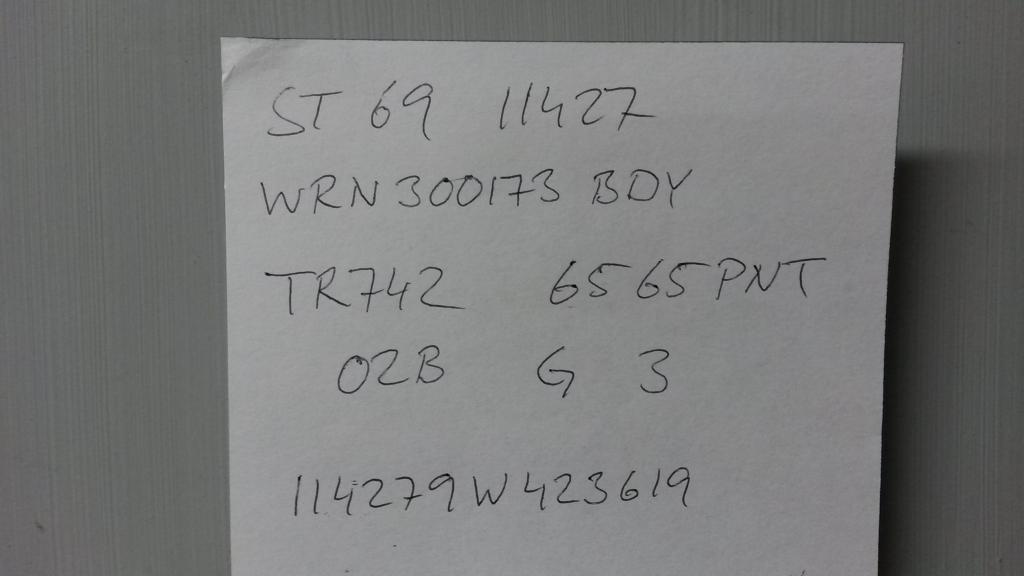 ST 69 11427
WRN300173 BDY
TR742 6565PNT
02B G 3
114279W423619